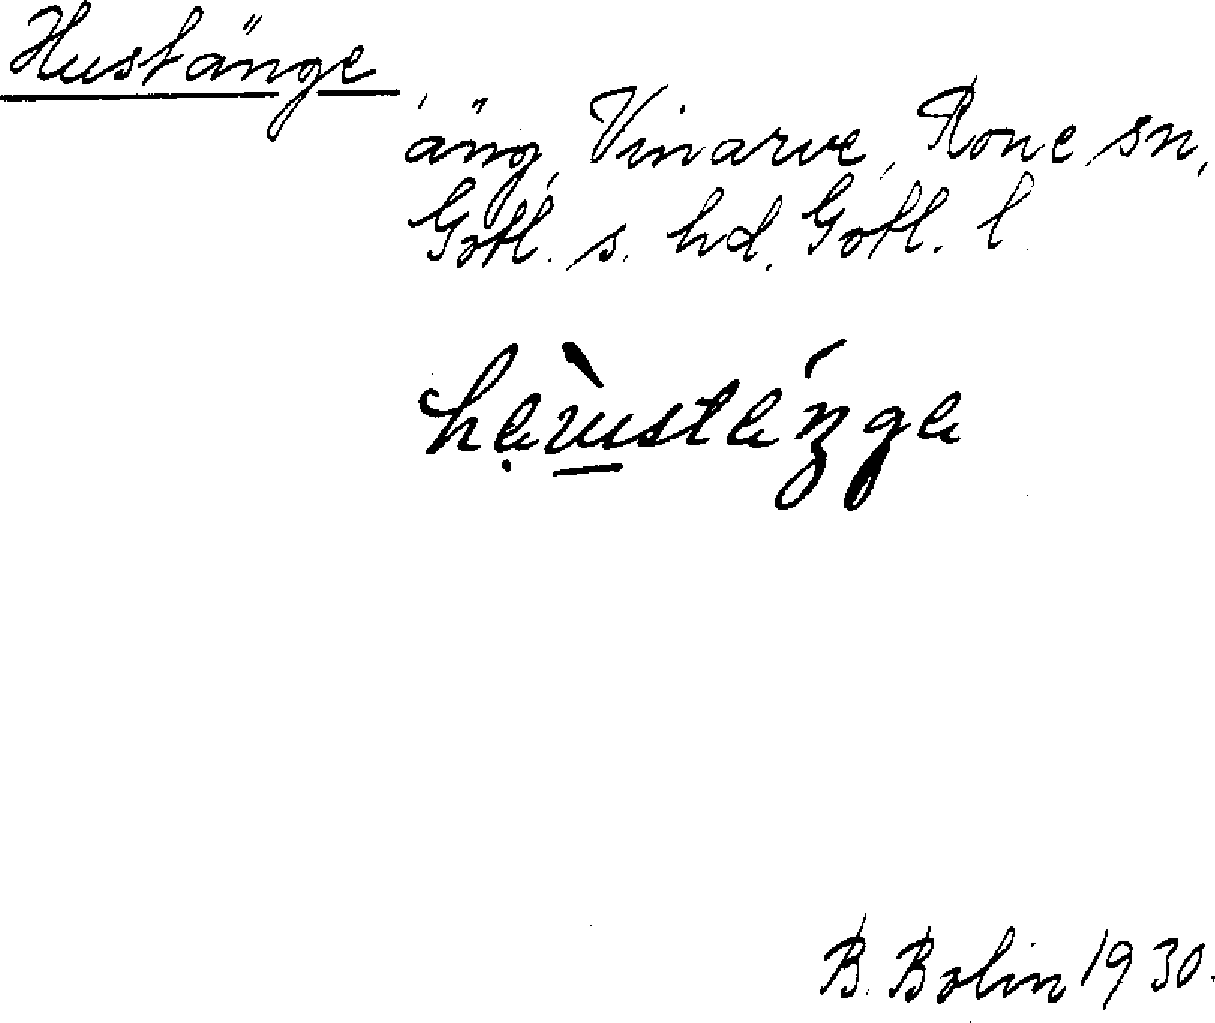 Hustänge
äng, Vinarve, Rone sn,
Gotl. s. hd. Gotl. l.
B. Bolin 1930.